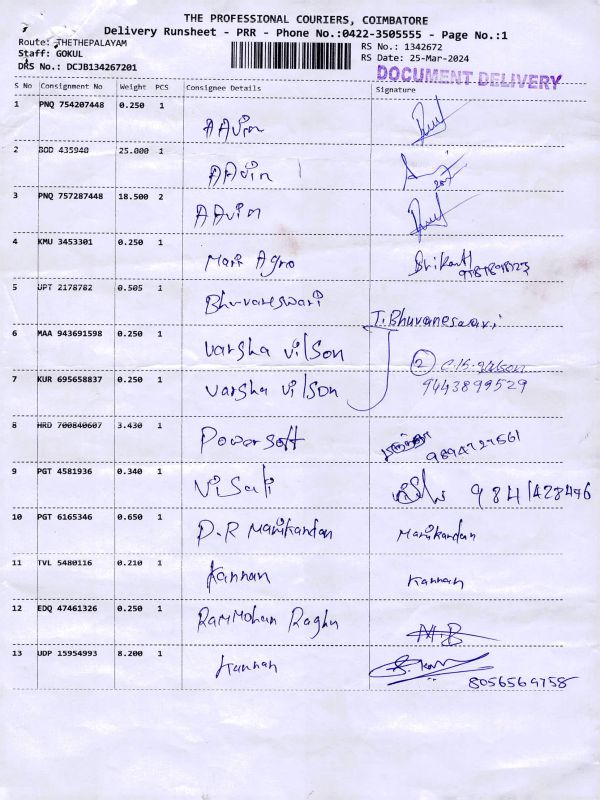 THE PROFESSIONAL COURIERS, COIMBATORE
Delivery Runsheet - PRR - Phone No.:0422-3505555 - Page No.:1
Route: THETHEPALAYAM RS No.: 1342672
Staff: GOKUL RS Date: 25-Mar-2024
DRS No.: DCJB134267201 DOCUMENT DELIVERY
S No Consignment No Weight PCS Consignee Details Signature
1 PNQ 754207448 0.250 1 AAvin
2 BOD 435940 25.000 1 AAvin
3 PNQ 757287448 18.500 2 AAvin
4 KMU 3453301 0.250 1 Mari Agro Srikant
5 UPT 2178782 0.505 1 Bhuvaneswari
J.Bhuvaneswari
6 MAA 943691598 0.250 1 varsha vilson
2
7 KUR 695658837 0.250 1 varsha vilson 9443899529
8 HRD 700840607 3.430 1 Powersoft 9894727561
9 PGT 4581936 0.340 1 Visali 9841428496
10 PGT 6165346 0.650 1 D.R Manikandan Manikandan
11 TVL 5480116 0.210 1 Kannan Kannan
12 EDQ 47461326 0.250 1 RamMohan Raghu
13 UDP 15954993 8.200 1 Kannan
8056569758